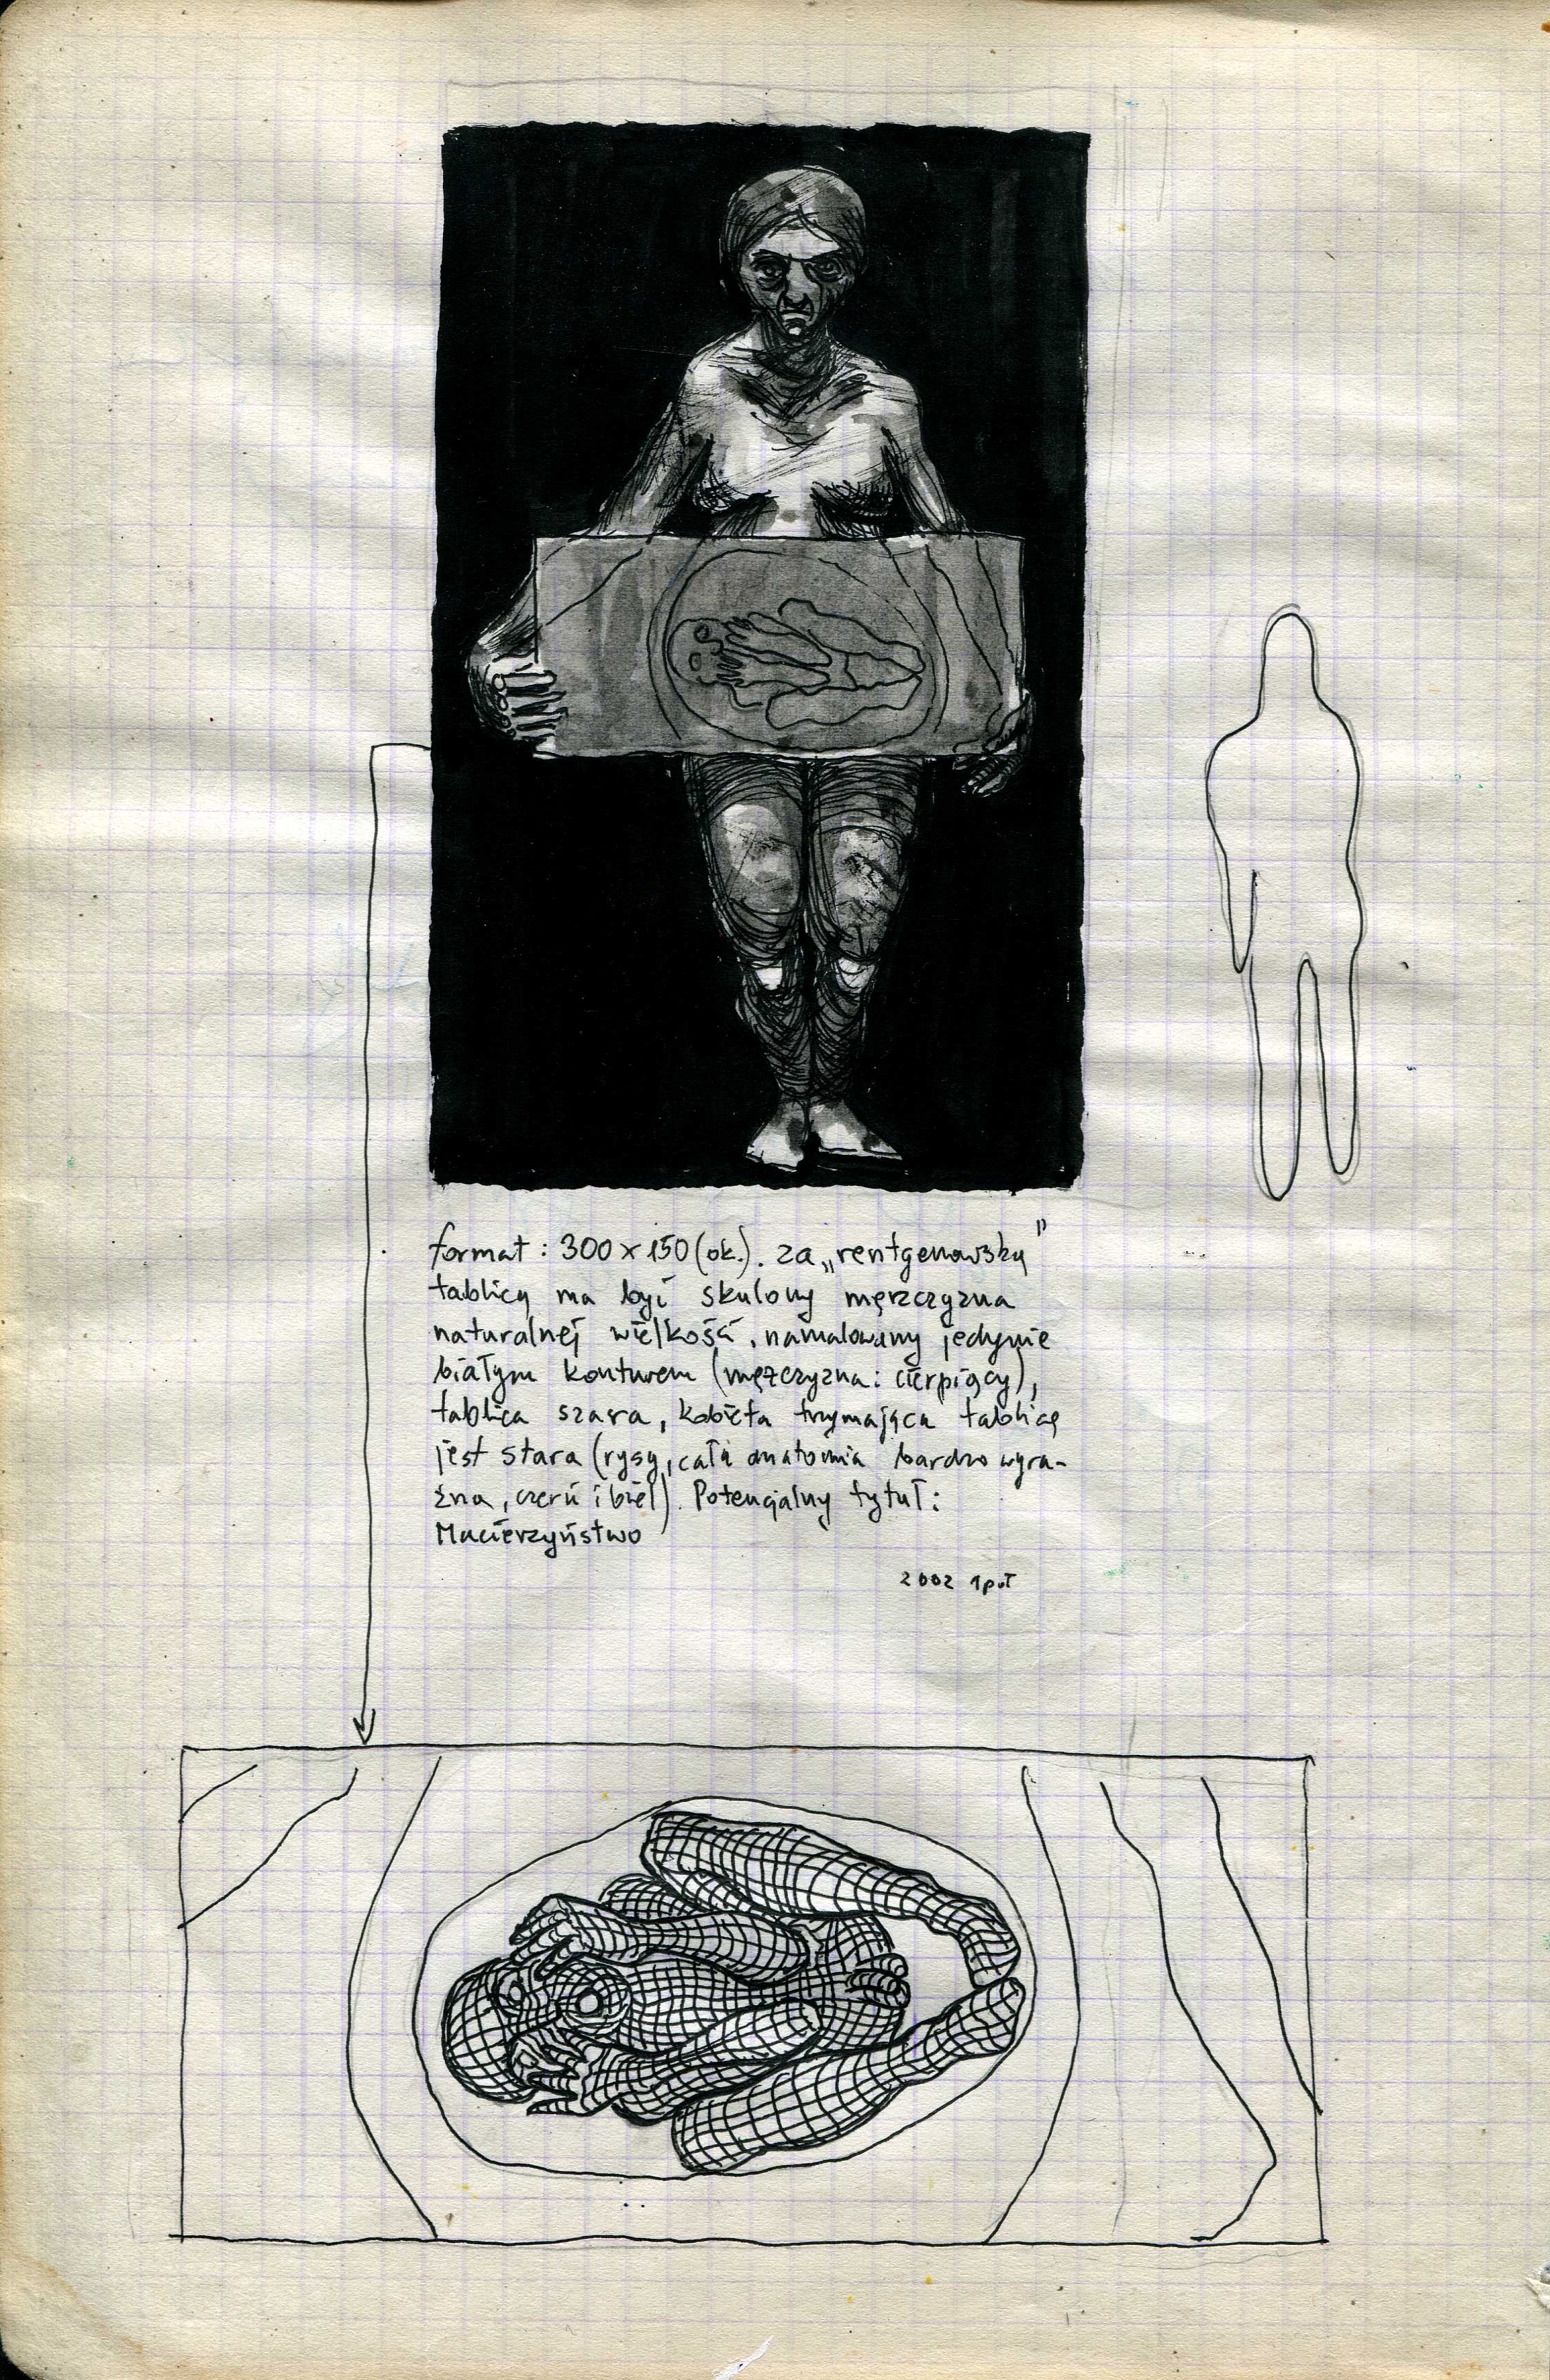 format : 300 x 150 (ok.). za „rentgenowską”
tablicą ma być skulony mężczyzna
naturalnej wielkości, namalowany jedynie
białym konturem (mężczyzna: cierpiący),
tablica szara, kobieta trzymająca tablicę
jest stara (rysy, cała anatomia bardzo wyra-
źna, czerń i biel). Potencjalny tytuł:
Macierzyństwo
2002 1poł